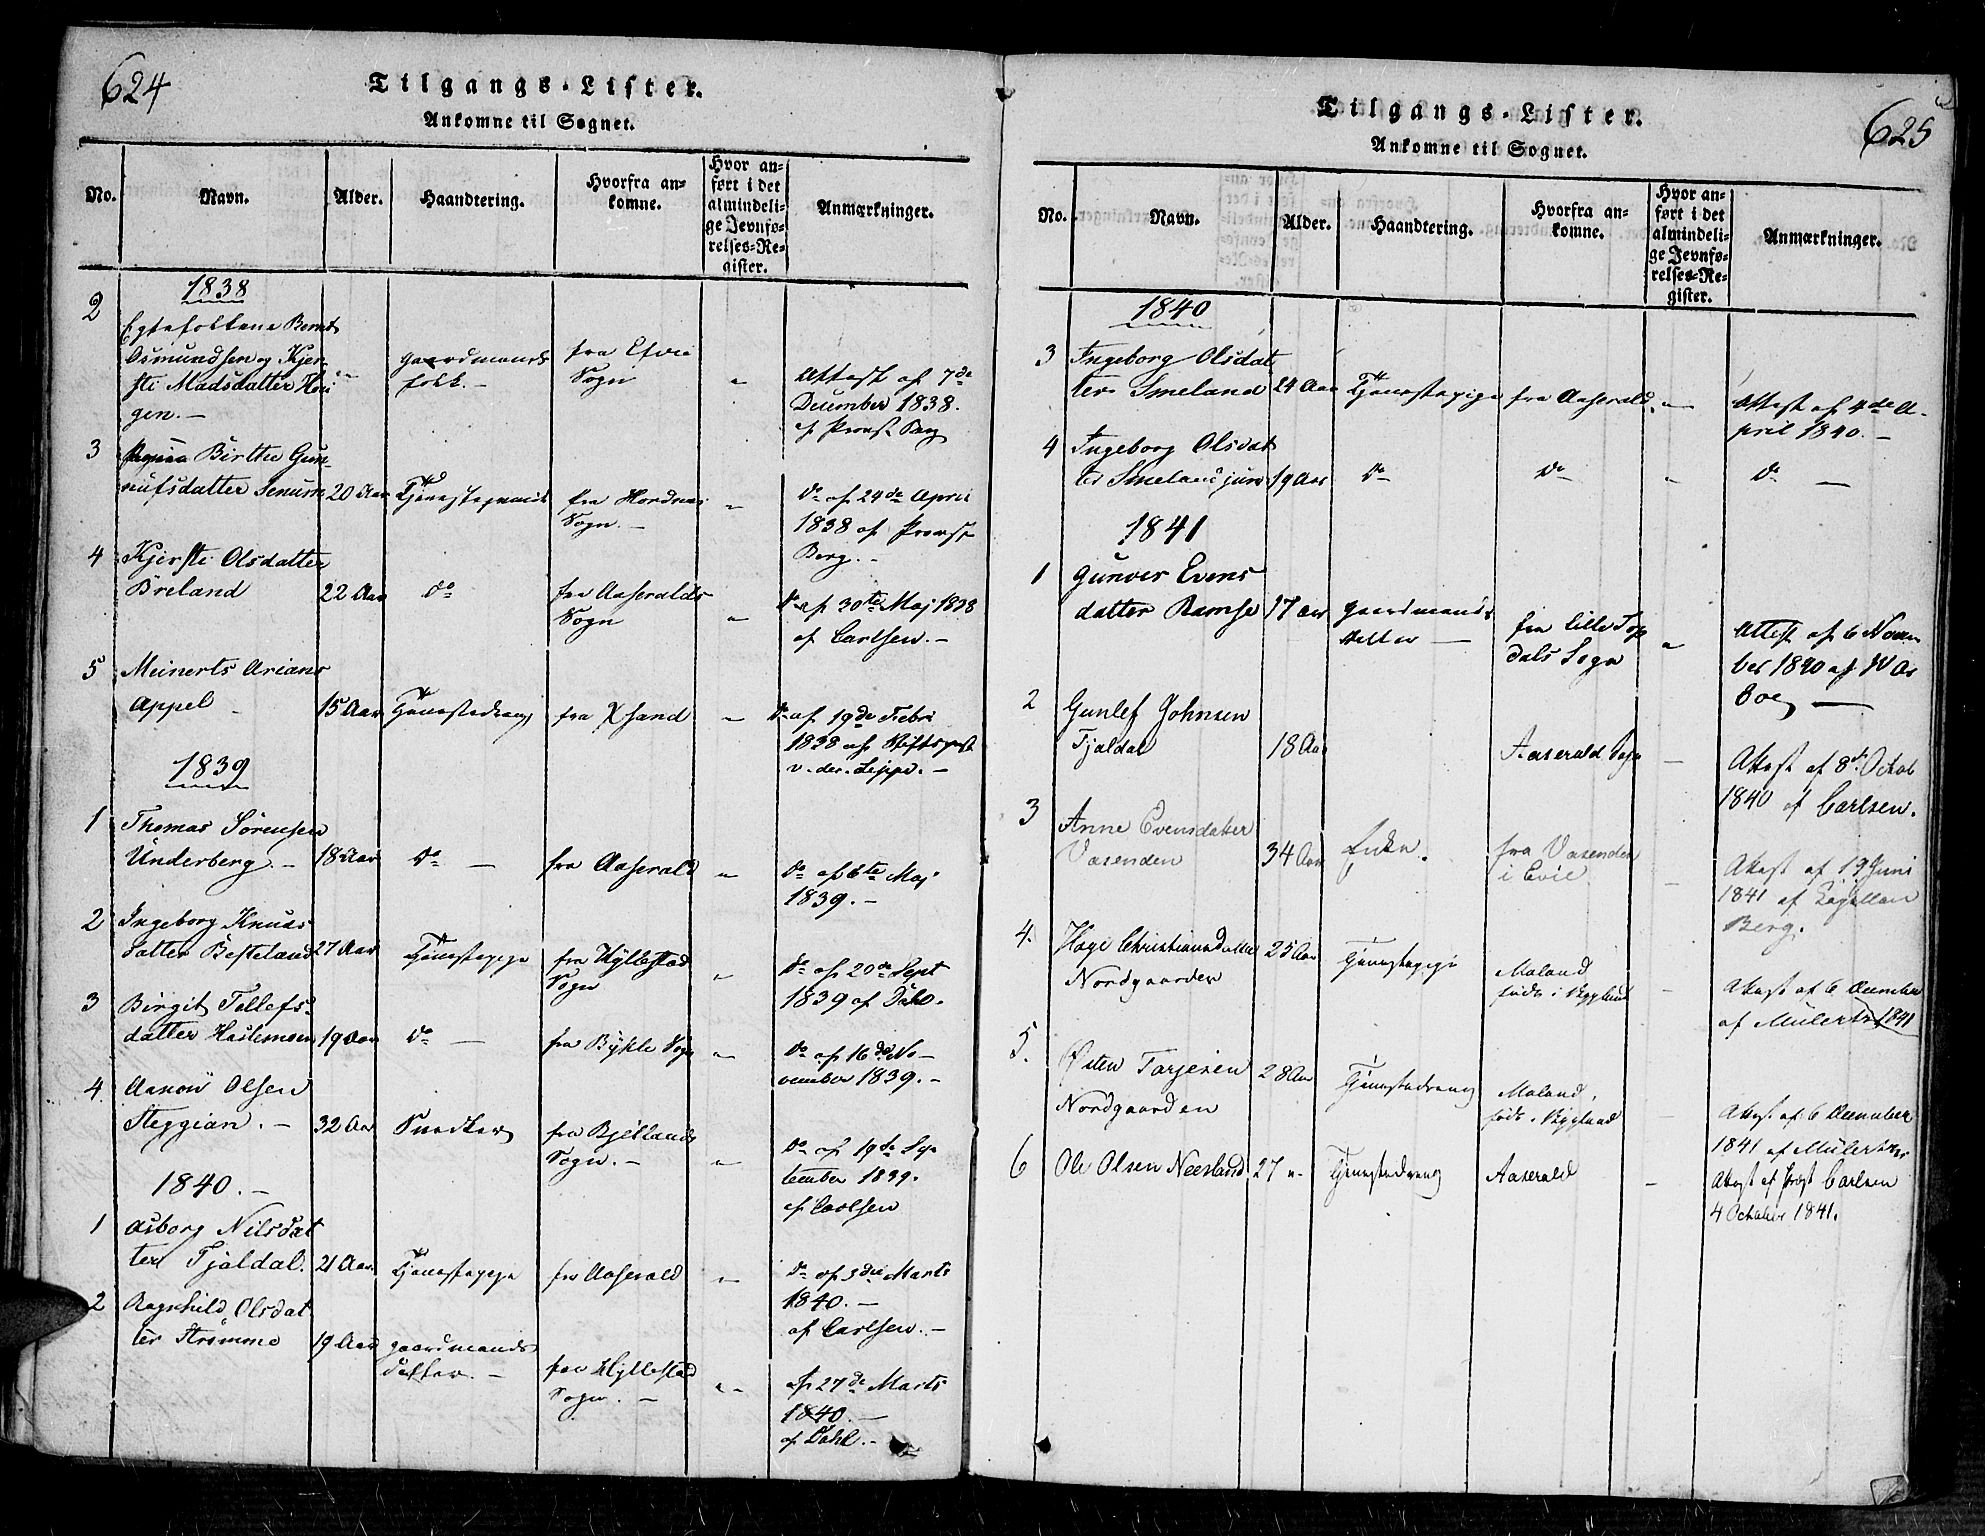 624
Tilgangs-Lister.
Ankomne til Sognet.
No.
Navn.
Alder.
Haandtering.
Hvorfra an-
komne.
Hvor an-
ført i det
almindeli-
ge Jevnfø-
relses-Re-
gister.
Anmærkninger.
1838
2
Egtefolkene Bernt
Osmundsen og Kjer-
sti Madsdatter
gen. -
gaardmands
folk. -
fra
Sogn
"
Attest af 7de
December 1838.
af Provst Berg
3
Birthe Gun-
nufsdatter Senum
20 Aar
fra Hordnes
Sogn. -
"
Do af 24de April
1838 af Provst
Berg. -
4
Kjersti Olsdatter
Breland
22 Aar
do
fra Aaseralds
Sogn
"
Do af 30te Maj 1838
af Carlsen. -
5
Meinerts Arians
Appel -
15 Aar
Tjenestedreng
fra Xsand
"
Do af 19de Febr
1838 af Stiftsprost
v. der. Lippe. -
1839
1
Thomas Sörensen
Underberg. -
18 Aar
Do -
fra Aaserald
"
Do af 6te Maj
1839. -
2
Ingeborg Knuds
datter Besteland
27 Aar
Tjenestepige
fra Hyllestad
Sogn
"
Do af 20de Sept
1839 af Dahl.
3
Birgit Tellefs-
datter Haslemoen
19 Aar
Do -
fra Bykle Sogn
"
Do af 16de No-
vember 1839. -
4
Olsen
Steggian. -
32 Aar
Snedker
fra Bjellands
Sogn. -
"
Do af 19de Sep
tember 1839.
af Carlsen
1840. -
1
Asborg Nilsdat
ter Tjaldal.
21 Aar
Tjenestepige
fra Aaserald
"
Do af 3die Marts
1840. -
af Carlsen. -
2
Aagnhild Olsdat
ter Strömme
19 Aar
gaardmands
datter. -
fra Hyllestad
Sogn. -
"
af 27de Marts
1840. -
af Dahl. -
625
Tilgangs-Lister.
Ankomne til Sognet.
No.
Navn.
Alder.
Haandtering.
Hvorfra an-
komne.
Hvor an-
ført i det
almindeli-
ge Jevnfø-
relses-Re-
gister.
Anmærkninger.
1840
3
Ingeborg Olsdat
ter Smeland
24 Aar
Tjenestepige
fra Aaserald.
"
Attest af 4de A-
pril 1840. -
4
Ingeborg Olsdat
ter Smeland jun:
19 Aar
do
do
"
do -
1841
1
Gunver Evens
datter Ramse
17 aar
gaardmands
datter -
fra Lille Top
dals Sogn
"
Attest af 6 Novem
ber 1840 af
Boe -
2
Gunlef Johnsen
Tjaldal
18 Aar
Aaserald Sogn
-
Attest af 8de Octob
1840 af Carlsen.
3
Anne Evensdatter
Vasenden
34 Aar
Enke.
fra Vasenden
i Evie
-
Attest af 19 Juni
1841 af Capellan
Berg.
4.
Hage Christiansdatter
Nordgaarden
25 Aar
Tjenestepige
Moland
född i Bygland
-
Attest af 6 December
af Mülertz 1841
5.
Østen Tarjesen
Nordgaarden
28 Aar
Tjenestedreng
Moland,
född i Bygland
-
Attest af 6 December
1841 af Mülertz
6
Ole Olsen Neesland
27 "
Tjenestedreng
Aaserald
-
Attest af Prost Carlsen
4 October 1841.